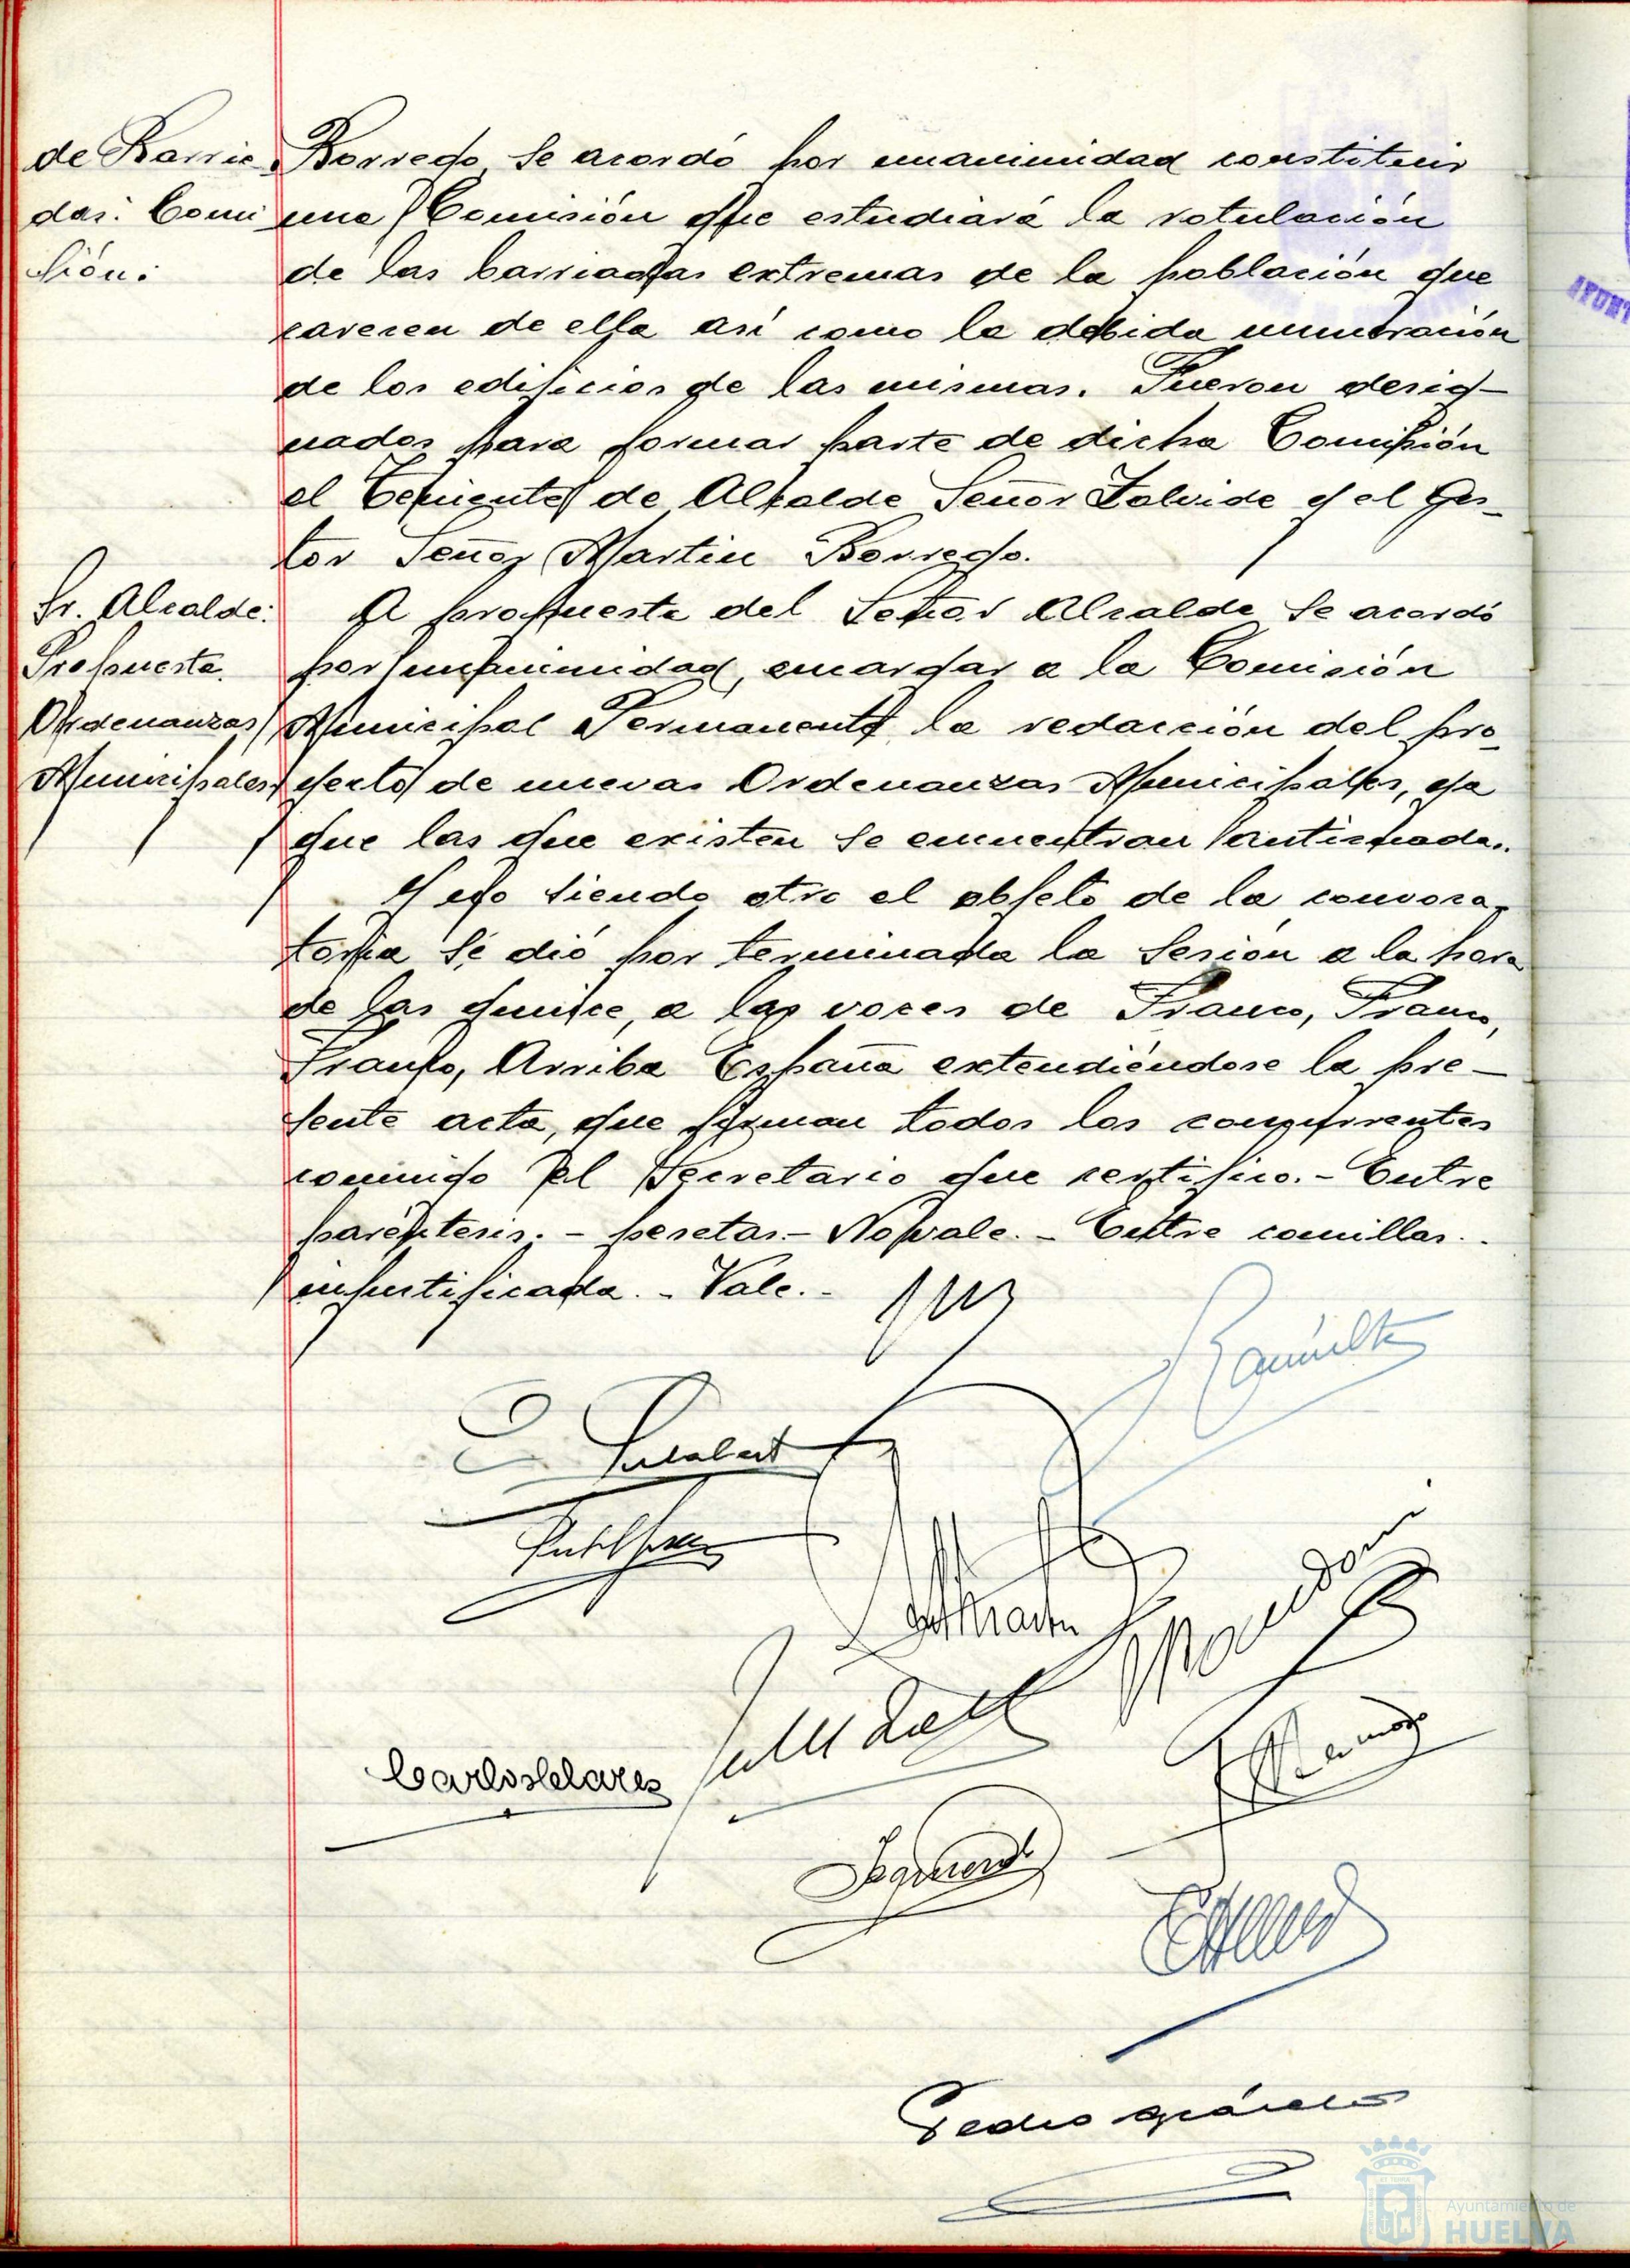 de Barria
das: Comi
sión:
Borrego se acordó por unanimidad constituir
una Comisión que estudiará la rotulación
de las barriadas extremas de la población que
carecen de ella así como la debida numeración
de los edificios de las mismas. Fueron desig-
nados para formar parte de dicha Comisión
el Teniente de Alcalde Señor Zalvide y el Ges-
tor Señor Martin Borrego.
Sr. Alcalde:
Propuesta.
Ordenanzas
Municipales
A propuesta del Señor Alcalde se acordó
por unanimidad, encargar a la Comisión
Municipal Permanente la redacción del pro-
yecto de nuevas Ordenanzas Municipales, ya
que las que existen se encuentran anticuadas.
Y no siendo otro el objeto de la convoca-
toria se dió por terminada la sesión a la hora
de las quince, a las voces de Franco, Franco,
Franco, Arriba España extendiéndose la pre-
sente acta, que firman todos los concurrentes
conmigo el Secretario que certifico.- Entre
paréntesis.- pesetas.- No vale.- Entre comillas.-
injustificada.- Vale.-
Carlos
Izquierdo
Pedro
Ayuntamiento de
HUELVA